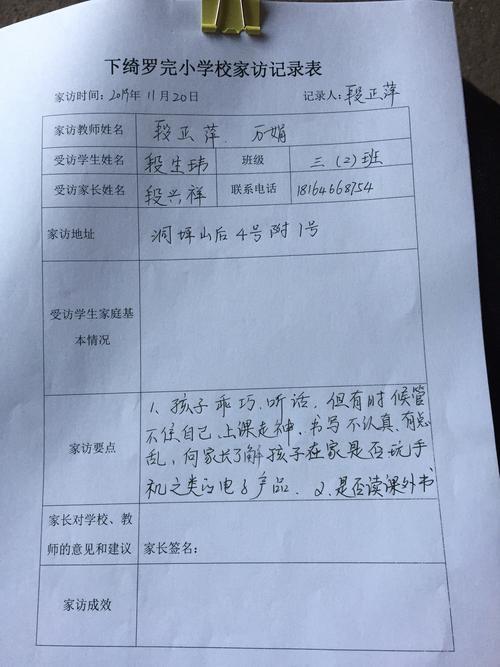 下绮罗完小学校家访记录表
家访时间：2017年11月20日 记录人：段正萍
家访教师姓名 段正萍、万娟
受访学生姓名 段生玮 班级 三（2）班
受访家长姓名 段兴祥 联系电话 18164668754
家访地址 洞坪山后4号附1号
受访学生家庭基
本情况
1、孩子乖巧、听话，但有时候管
不住自己，上课走神，书写不认真，有点
家访要点
乱，向家长了解孩子在家是否玩手
机之类的电子产品．2、是否读课外书
家长对学校、教
师的意见和建议 家长签名：
家访成效